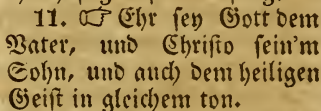 11. ☞ Ehr sey Gott dem
Vater, und Christo sein'm
Sohn, und auch dem heiligen
Geist in gleichem ton.